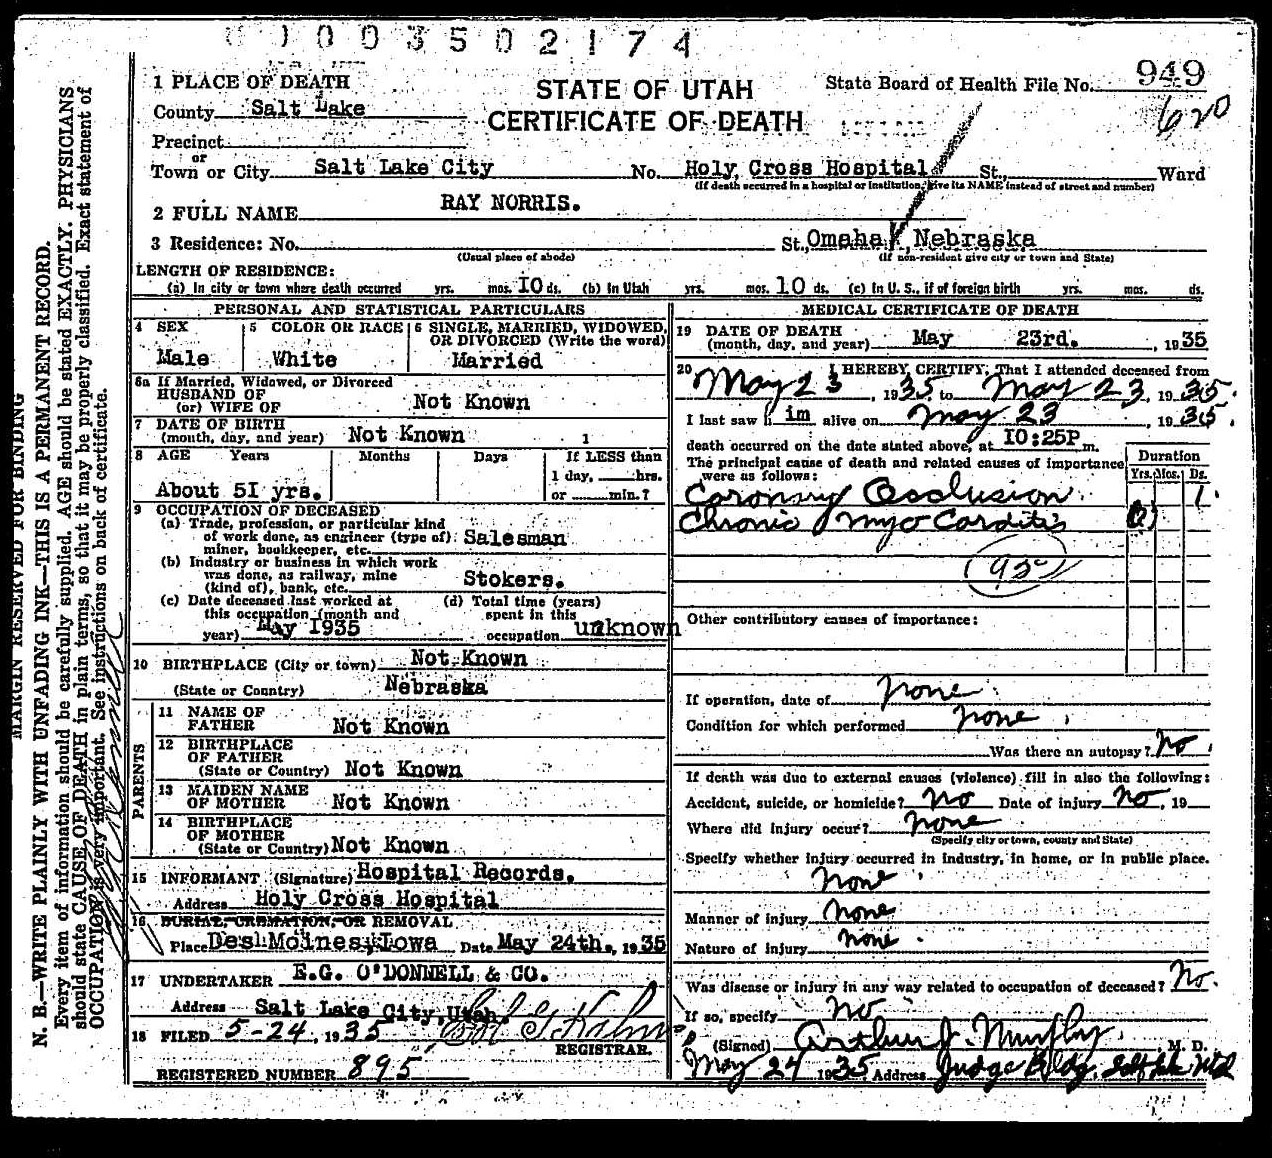 0003502174
1 PLACE OF DEATH
STATE OF UTAH
CERTIFICATE OF DEATH
State Board of Health File No. 949
620
County Salt Lake
Precinct
or
Town or City Salt Lake City No. Holy Cross Hospital St., Ward
(If death occurred in a hospital or institution, give its NAME instead of street and number)
2 FULL NAME RAY NORRIS.
3 Residence: No. St., Omaha, Nebraska
(Usual place of abode) (If non-resident give city or town and State)
LENGTH OF RESIDENCE:
(a) In city or town where death occurred yrs. mos. 10 ds. (b) in Utah yrs. mos. 10 ds. (c) in U. S., if of foreign birth yrs. mos. ds.
PERSONAL AND STATISTICAL PARTICULARS
4 SEX Male
5 COLOR OR RACE White
6 SINGLE, MARRIED, WIDOWED, OR DIVORCED (Write the word) Married
6a If Married, Widowed, or Divorced
HUSBAND OF
(or) WIFE OF Not Known
7 DATE OF BIRTH
(month, day, and year) Not Known
8 AGE Years Months Days If LESS than
1 day, hrs.
or min.?
About 51 yrs.
9 OCCUPATION OF DECEASED
(a) Trade, profession, or particular kind
of work done, as engineer (type of)
miner, bookkeeper, etc. Salesman
(b) Industry or business in which work
was done, as railway, mine
(kind of), bank, etc. Stokers.
(c) Date deceased last worked at
this occupation (month and
year) May 1935
(d) Total time (years)
spent in this
occupation unknown
10 BIRTHPLACE (City or town) Not Known
(State or Country) Nebraska
PARENTS
11 NAME OF
FATHER Not Known
12 BIRTHPLACE
OF FATHER
(State or Country) Not Known
13 MAIDEN NAME
OF MOTHER Not Known
14 BIRTHPLACE
OF MOTHER
(State or Country) Not Known
15 INFORMANT (Signature) Hospital Records.
Address Holy Cross Hospital
16 BURIAL, CREMATION, OR REMOVAL
Place Des Moines, Iowa Date May 24th., 1935
17 UNDERTAKER E.G. O'DONNELL & CO.
Address Salt Lake City, Utah.
18 FILED 5-24, 1935
REGISTRAR.
REGISTERED NUMBER 895
MEDICAL CERTIFICATE OF DEATH
19 DATE OF DEATH
(month, day, and year) May 23rd. , 1935
20 I HEREBY CERTIFY, That I attended deceased from
May 23, 1935, to May 23, 1935
I last saw him alive on May 23, 1935.
death occurred on the date stated above, at 10:25P m.
The principal cause of death and related causes of importance
were as follows:
Duration
Yrs. Mos. Ds.
Coronary Occlusion 1
Chronic Myocarditis (?)
Other contributory causes of importance:
If operation, date of none
Condition for which performed none
Was there an autopsy? No
If death was due to external causes (violence) fill in also the following:
Accident, suicide, or homicide? No Date of injury No, 19
Where did injury occur? none
(Specify city or town, county and State)
Specify whether injury occurred in industry, in home, or in public place.
none
Manner of injury none
Nature of injury none.
Was disease or injury in any way related to occupation of deceased? No.
If so, specify No
(Signed) Arthur J. Murphy, M. D.
May 24 1935, Address Judge Bldg.
MARGIN RESERVED FOR BINDING
N. B.—WRITE PLAINLY WITH UNFADING INK—THIS IS A PERMANENT RECORD.
Every item of information should be carefully supplied. AGE should be stated EXACTLY. PHYSICIANS
should state CAUSE OF DEATH in plain terms, so that it may be properly classified. Exact statement of
OCCUPATION is very important. See instructions on back of certificate.